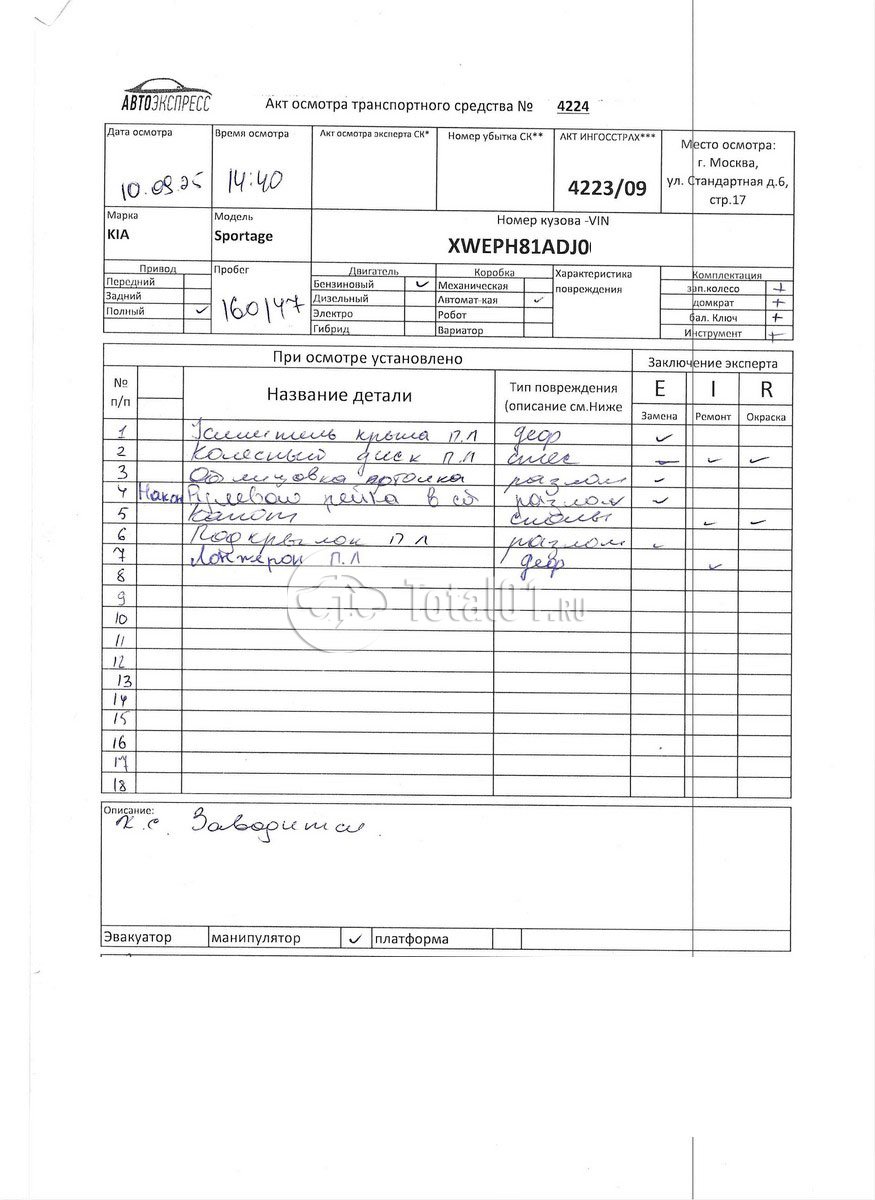 АВТОЭКСПРЕСС
Акт осмотра транспортного средства № 4224
Дата осмотра Время осмотра Акт осмотра эксперта СК* Номер убытка СК** АКТ ИНГОССТРАХ*** Место осмотра:
г. Москва,
10.09.25 14:40 4223/09 ул. Стандартная д.6,
стр.17
Марка Модель Номер кузова -VIN
KIA Sportage XWEPH81ADJ0
Привод Пробег Двигатель Коробка Характеристика Комплектация
Передний Бензиновый ✓ Механическая повреждения зап.колесо +
Задний Дизельный Автомат-кая ✓ домкрат +
Полный ✓ 160147 Электро Робот бал. Ключ +
Гибрид Вариатор Инструмент +
При осмотре установлено Заключение эксперта
№ п/п Название детали Тип повреждения (описание см.Ниже E I R
Замена Ремонт Окраска
1 крыла П.Л деф ✓
2 Колесный диск П.Л – ✓ ✓
3 Облицовка разлом ✓
4 Након рейка в сб разлом ✓
5 Капот сколы ✓ ✓
6 Подкрылок П Л разлом ✓
7 Лонжерон П.Л деф ✓
8
9
10
11
12
13
14
15
16
17
18
Total01.RU
Описание:
х.с. Заводится
Эвакуатор манипулятор ✓ платформа